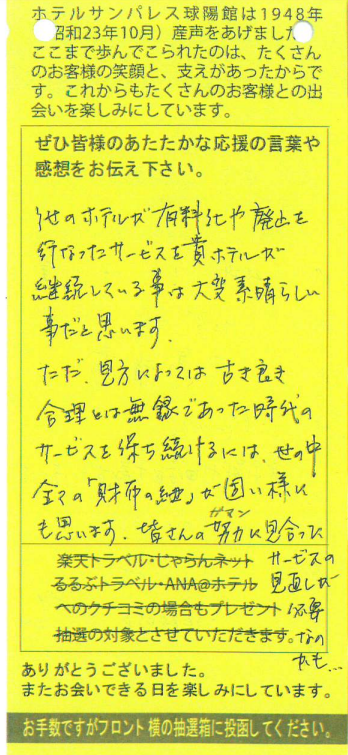 ホテルサンパレス球陽館は1948年
昭和23年10月）産声をあげました
ここまで歩んでこられたのは、たくさん
のお客様の笑顔と、支えがあったからで
す。これからもたくさんのお客様との出
会いを楽しみにしています。
ぜひ皆様のあたたかな応援の言葉や
感想をお伝え下さい。
他のホテルが有料化や廃止を
行なったサービスを貴ホテルが
継続している事は大変素晴らしい
事だと思います。
ただ、見方によっては古き良き
合理とは無縁であった時代の
サービスを保ち続けるには、世の中
全ての「財布の紐」が固い様に
も思います。皆さんの努力に見合った
ガマン
サービスの
見直しが
必要
なの
かも…
楽天トラベル・じゃらんネット
るるぶトラベル・ANA@ホテル
へのクチコミの場合もプレゼント
抽選の対象とさせていただきます。
ありがとうございました。
またお会いできる日を楽しみにしています。
お手数ですがフロント横の抽選箱に投函してください。